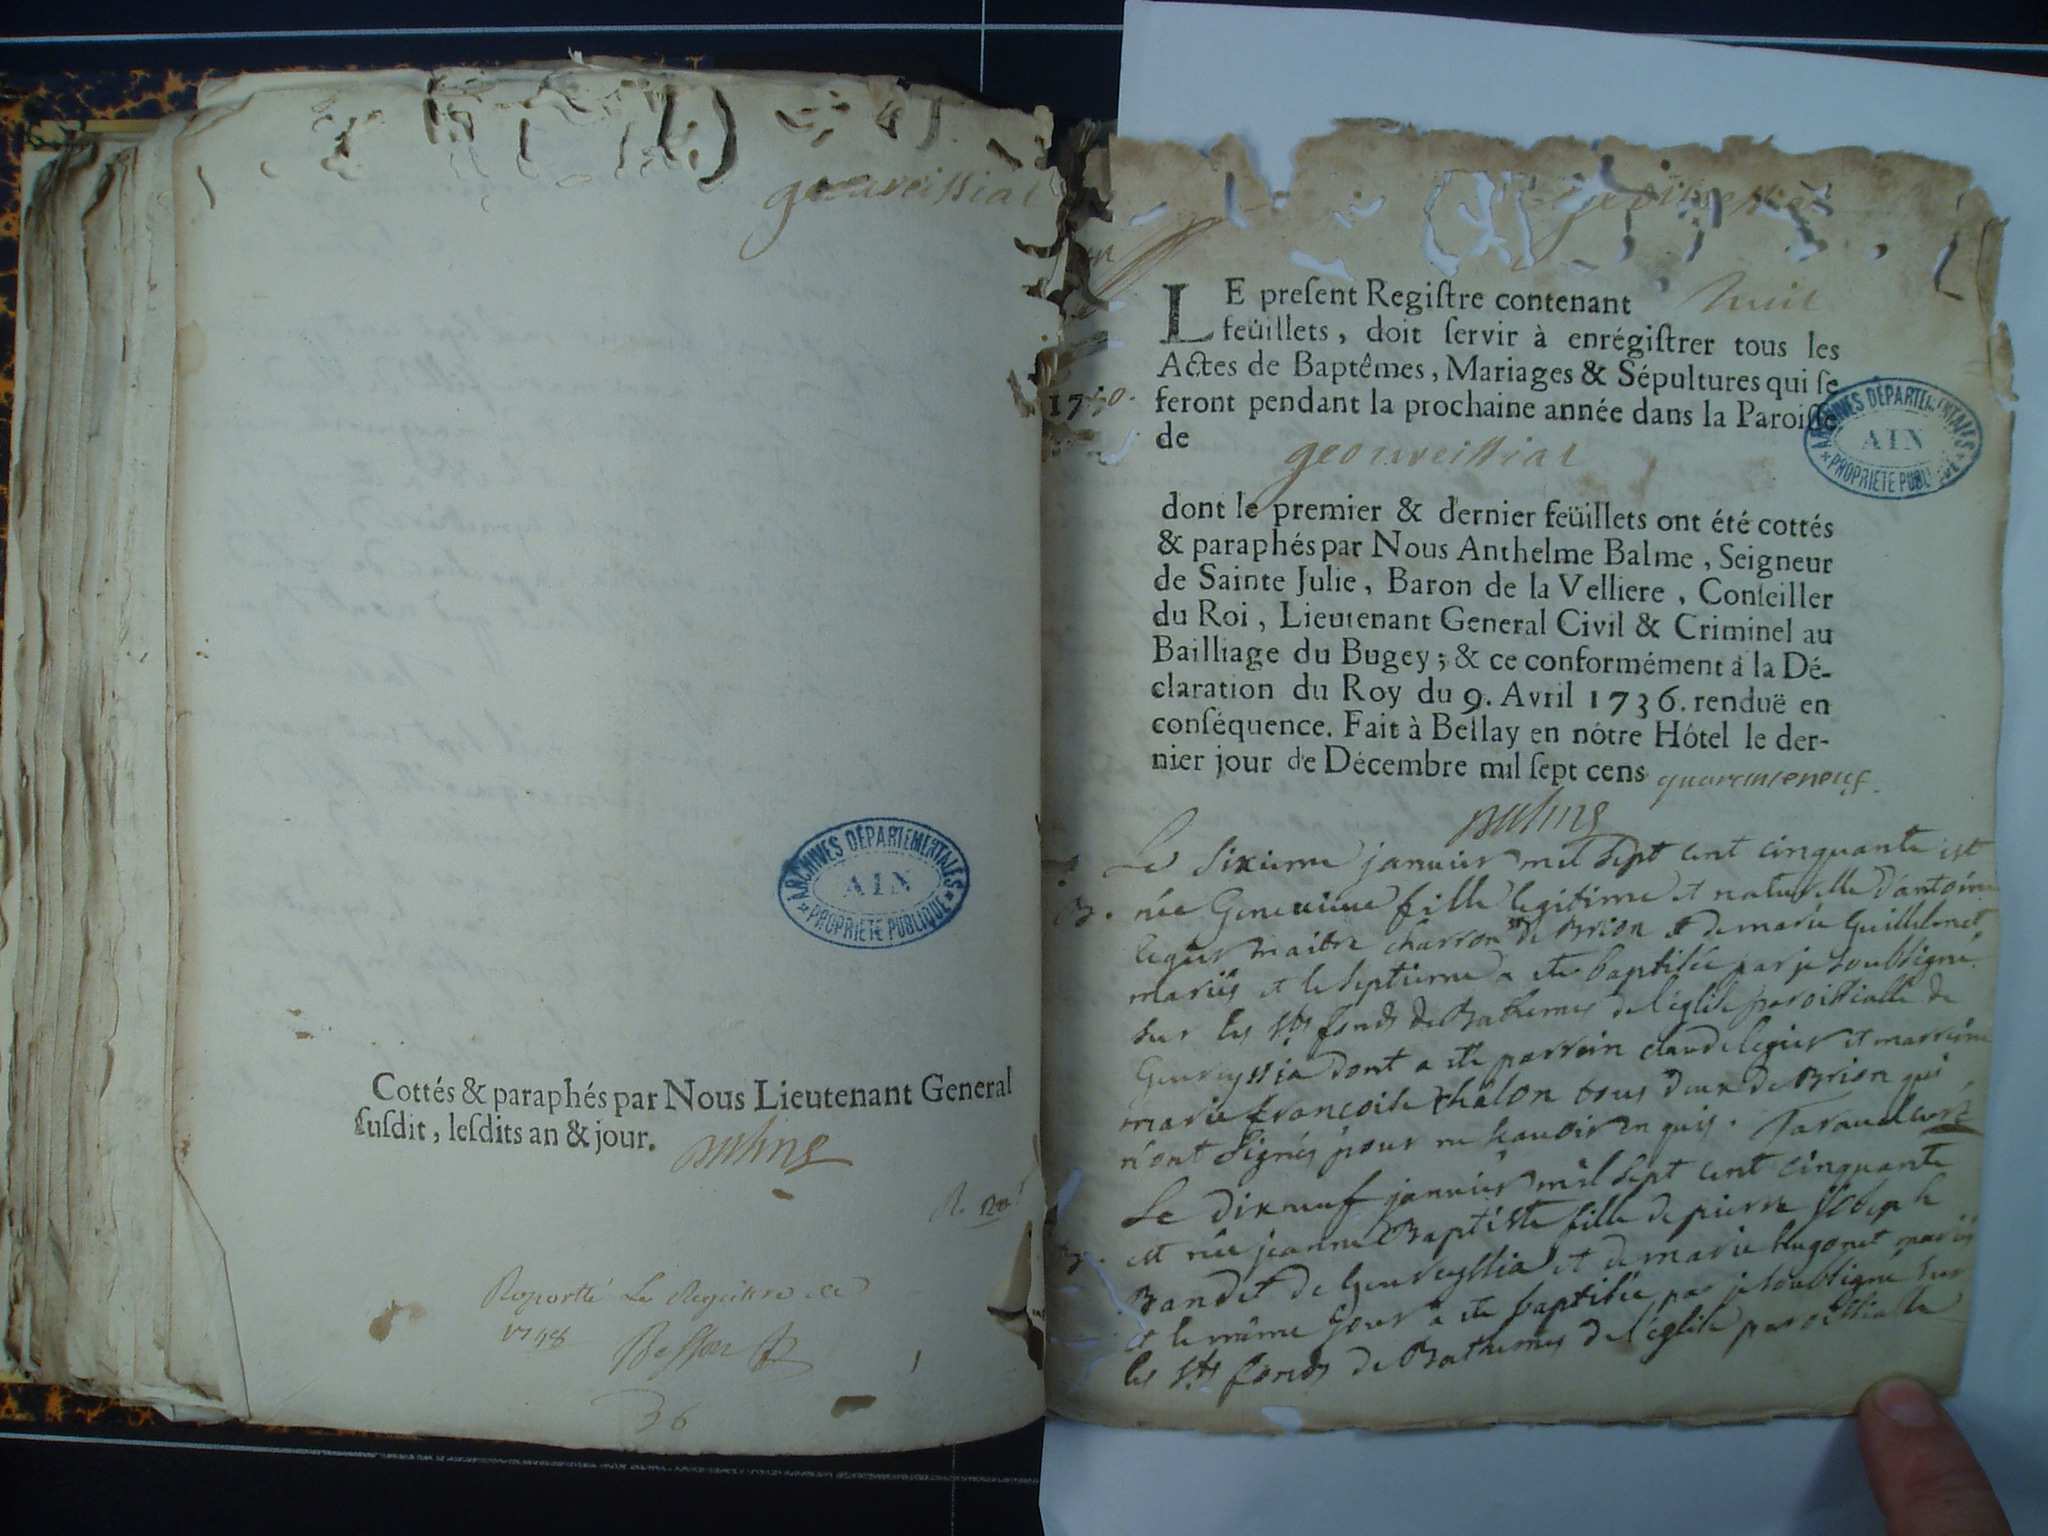 geouveissiat
Cottés & paraphés par Nous Lieutenant General
susdit, lesdits an & jour. Balme
Raporté Le Registre de
1748
36
ARCHIVES DÉPARTEMENTALES
AIN
PROPRIÉTÉ PUBLIQUE
LE present Registre contenant huit
feüillets, doit servir à enrégistrer tous les
Actes de Baptêmes, Mariages & Sépultures qui se
1750. feront pendant la prochaine année dans la Paroisse
de geouveissiat
ARCHIVES DÉPARTEMENTALES
AIN
PROPRIÉTÉ PUBLIQUE
dont le premier & dernier feüillets ont été cottés
& paraphés par Nous Anthelme Balme, Seigneur
de Sainte Julie, Baron de la Velliere, Conseiller
du Roi, Lieutenant General Civil & Criminel au
Bailliage du Bugey; & ce conformément à la Dé-
claration du Roy du 9. Avril 1736. renduë en
conséquence. Fait à Bellay en nôtre Hôtel le der-
nier jour de Décembre mil sept cens quaranteneuf.
Balme
Le sixieme janvier mil sept cent cinquante est
B. née Genevieve fille legitime et naturelle d'antoine
legier maitre charron de Brion et de marie Guillelmet
mariés et le septieme a ete baptisée par je soubsigné
sur les sts fonds de Bathemes de l'eglise paroissialle de
Geureyssia dont a ete parrain claude legier et marreine
marie francoise chalon tous deux de Brion qui
n'ont signés pour ne scavoir enquis. Taravel curé
Le dixneuf janvier mil sept cent cinquante
B. est née jeanne Baptiste fille de pierre joseph
Bandet de Geureyssia et de marie hugonet mariés
et le même jour a ete baptisée par je soubsigné sur
les sts fonds de Bathemes de l'eglise paroissialle